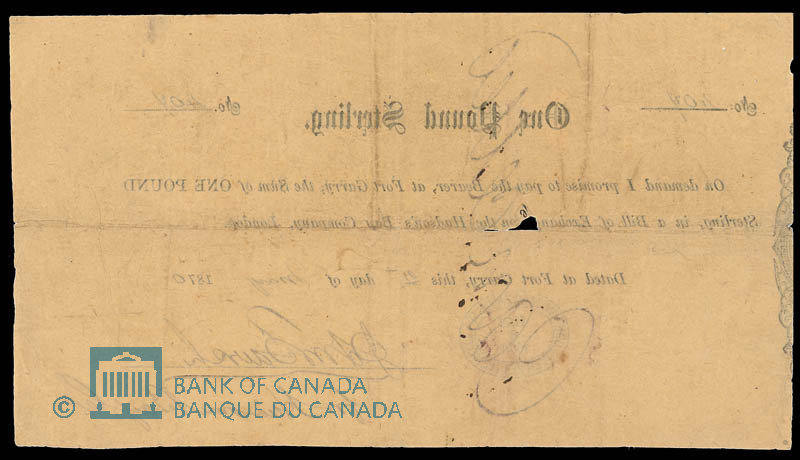 No. 407 No. 407
One Pound Sterling.
On demand I promise to pay the Bearer, at Fort Garry, the Sum of ONE POUND
Sterling, in a Bill of Exchange on the Hudson's Bay Company, London.
Dated at Fort Garry, this day of May 1870
© BANK OF CANADA
BANQUE DU CANADA